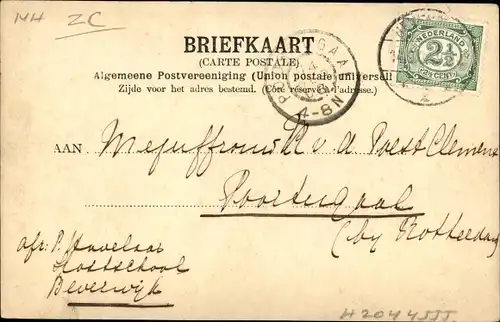 NH ZC
BRIEFKAART
(CARTE POSTALE)
Algemeene Postvereeniging (Union postale universelle)
Zijde voor het adres bestemd. (Côté réservé à l'adresse.)
NEDERLAND
2½
CENT
4-8N
AAN Mejuffrouw v. d. Poest Clement
Poortugaal
(by Rotterdam)
afz. P. Havelaar
Postschool
Beverwijk
H2044555